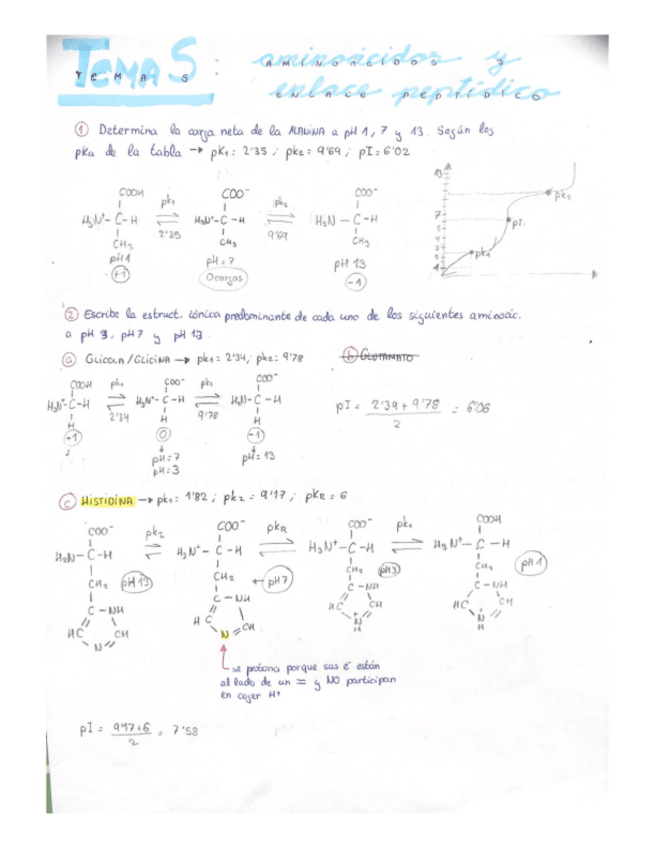 TEMA 5: aminoácidos y
TEMA 5 AMINOÁCIDOS Y
enlace peptídico
ENLACE PEPTÍDICO
① Determina la carga neta de la ALANINA a pH 1, 7 y 13. Según los
pKa de la tabla → pK1 = 2'35 ; pk2 = 9'69 ; pI = 6'02
COOH pk1 COO⁻ pk2 COO⁻
H3N⁺ - C - H ⇌ H3N⁺ - C - H ⇌ H2N - C - H
2'35 9'89
CH3 CH3 CH3
pH 1 pH = 7 pH 13
+1 0 cargas -1
13
7
5
4
3
2
1
pk2
pI
pk1
② Escribe la estruct. iónica predominante de cada uno de los siguientes aminoác.
a pH 3, pH 7 y pH 13.
ⓐ GLICOLA / GLICINA → pk1 = 2'34; pk2 = 9'78 ⓑ GLUTAMATO
COOH pk1 COO⁻ pk2 COO⁻
H3N⁺ - C - H ⇌ H3N⁺ - C - H ⇌ H2N - C - H
2'34 9'78
H H H
+1 0 -1
pH = 7 pH = 13
pH = 3
pI = 2'34 + 9'78 / 2 = 6'06
ⓒ HISTIDINA → pk1 = 1'82 ; pk2 = 9'17 ; pKR = 6
COO⁻ pk2 COO⁻ pKR COO⁻ pk1 COOH
H2N - C - H ⇌ H3N⁺ - C - H ⇌ H3N⁺ - C - H ⇌ H3N⁺ - C - H
CH2 pH 13 CH2 ← pH 7 CH2 pH 3 CH2 pH 1
C - NH C - NH C - NH C - NH
HC CH HC CH HC CH HC CH
N N N⁺ N⁺
H H
se protona porque sus e⁻ están
al lado de un = y NO participan
en coger H⁺
pI = 9'17 + 6 / 2 = 7'58